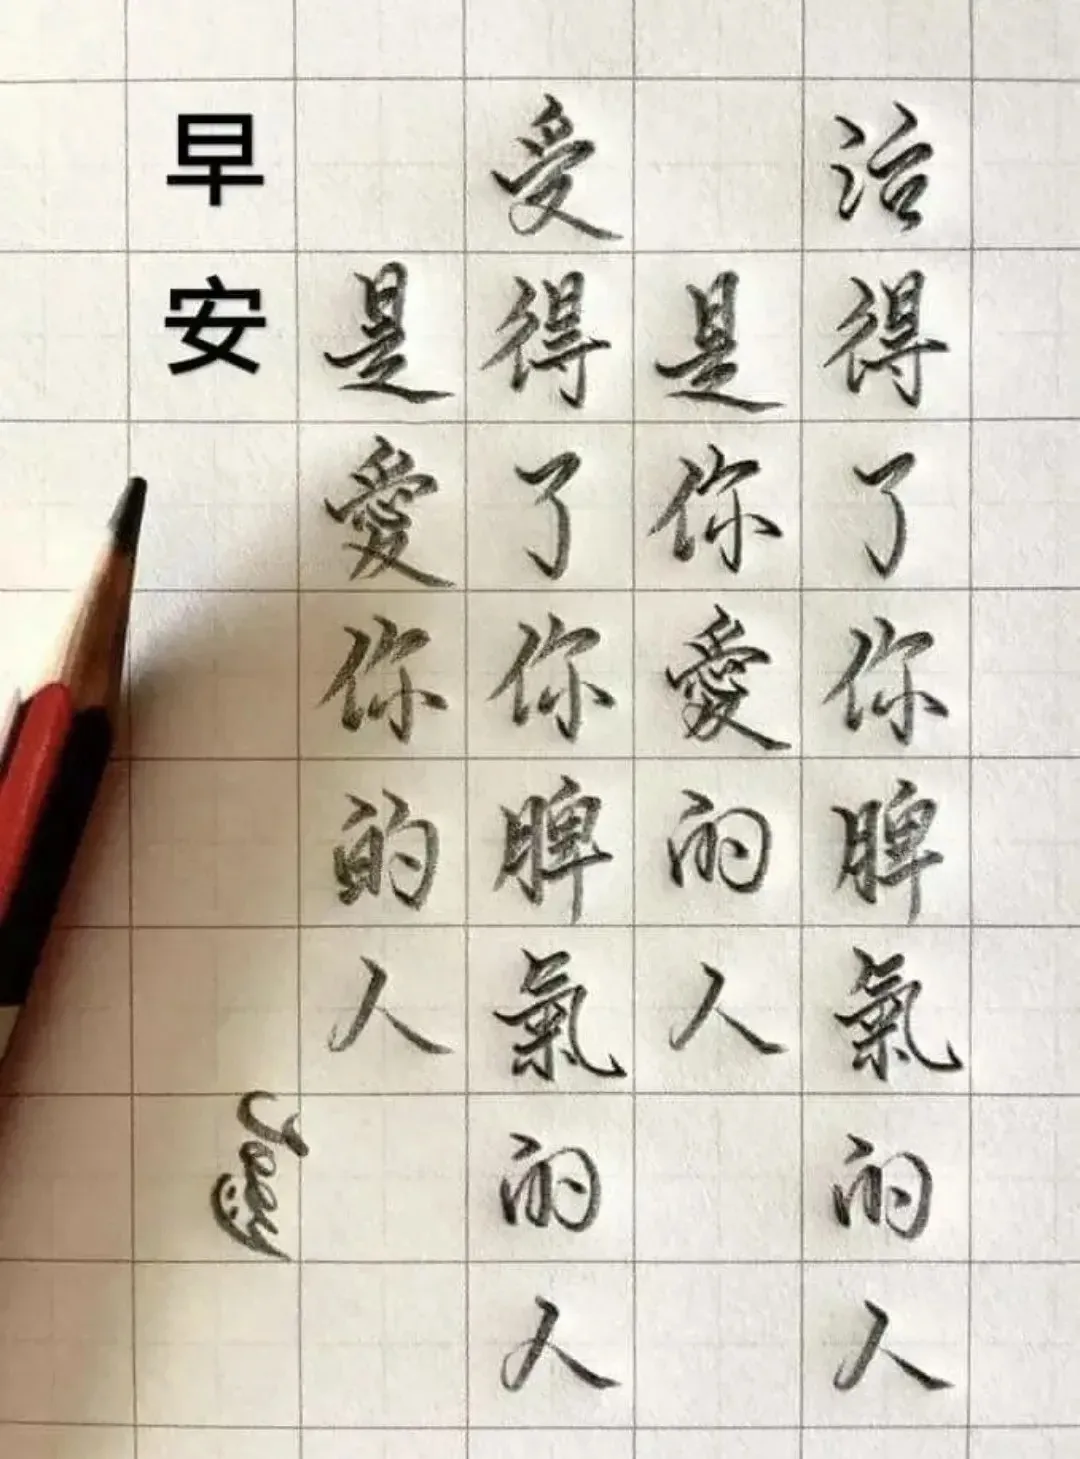 治得了你脾氣的人
是你愛的人
受得了你脾氣的人
是愛你的人
早安
Joey